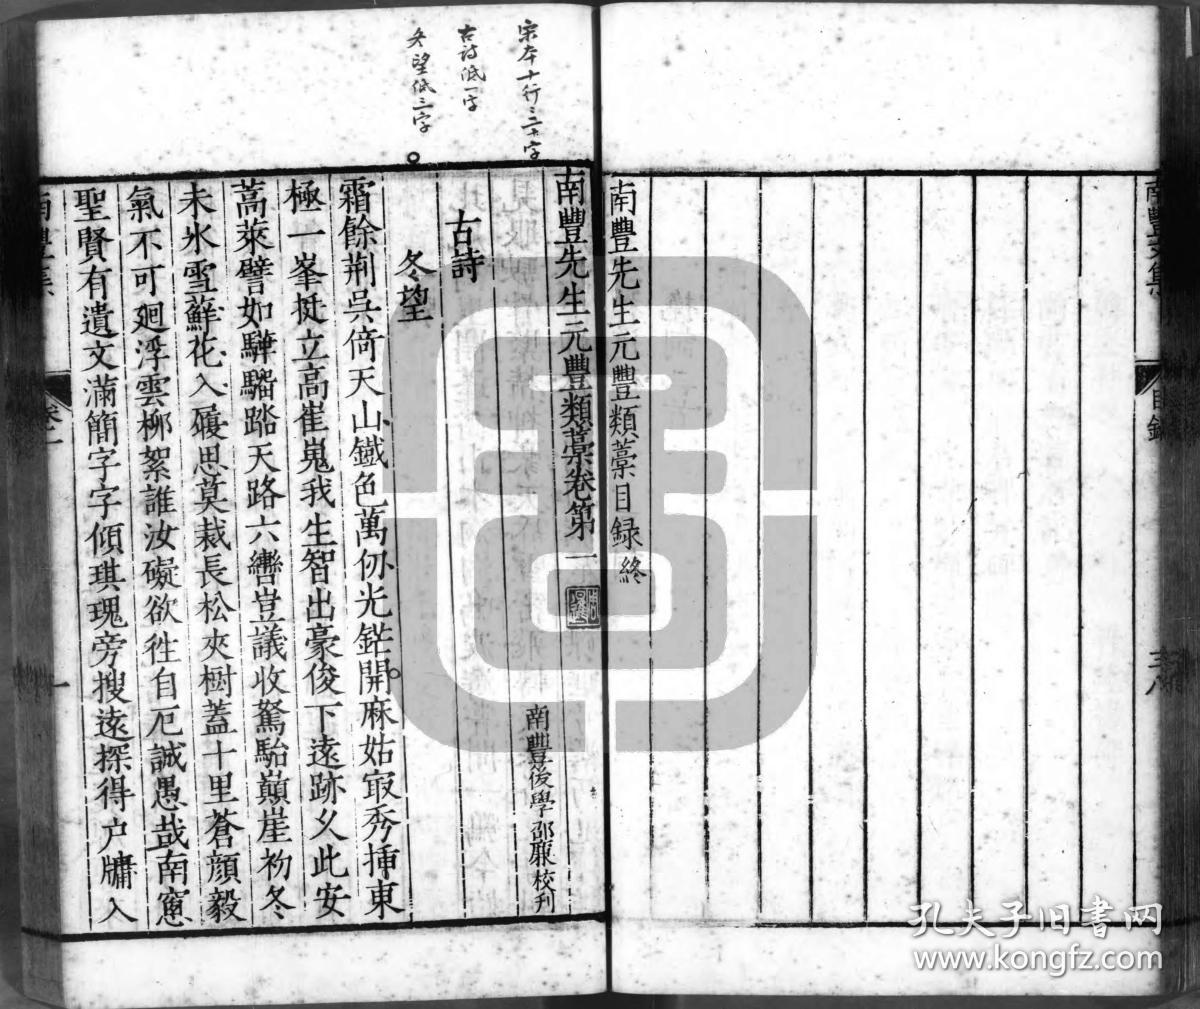 南豐文集
目錄
南豐先生元豐類藁目録終
宋本十行二十字
古詩低一字
冬望低三字
南豐先生元豐類藁卷第一
南豐後學邵廉校刊
古詩
冬望
霜餘荆吳倚天山鐵色萬仞光鋩開麻姑㝡秀揷東
極一峯挺立高崔嵬我生智出豪俊下遠跡久此安
蒿萊譬如驊騮踏天路六轡豈議收駑駘巔崖初冬
未氷雪蘚花入履思莫裁長松夾樹蓋十里蒼顔毅
氣不可廻浮雲柳絮誰汝礙欲徃自厄誠愚哉南窻
聖賢有遺文滿簡字字傾琪瑰旁搜遠探得户牖入
卷一
一
孔夫子旧书网
www.kongfz.com